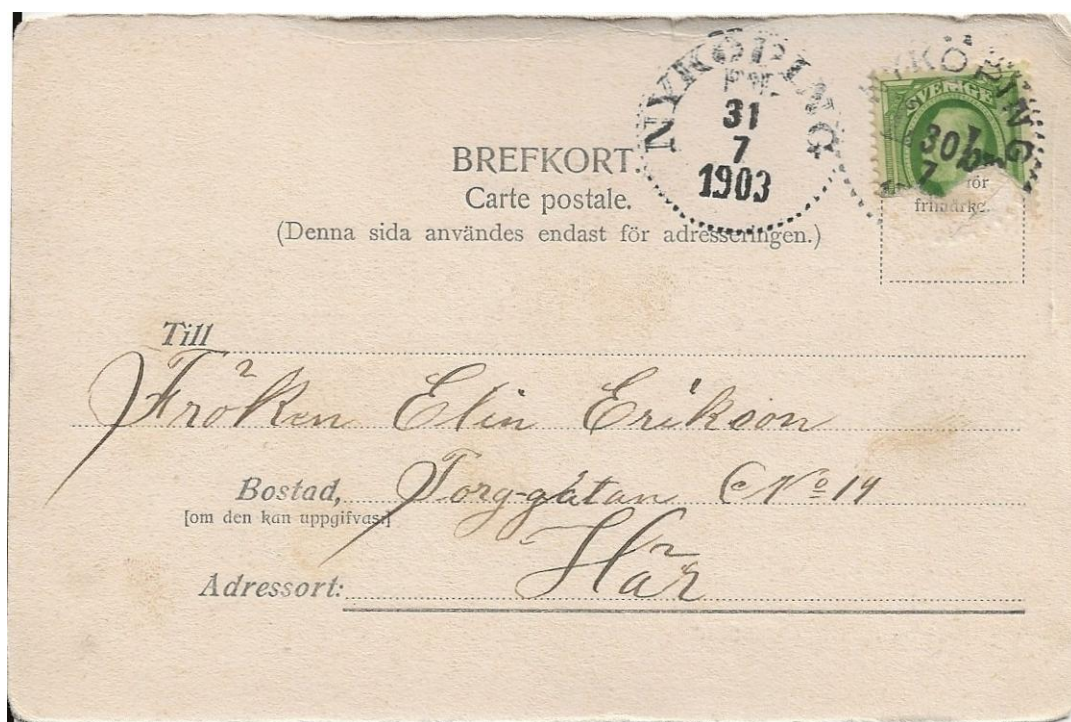 NYKÖPING
31
7
1903
NYKÖPING
30
7
SVERIGE
för
frimärke.
BREFKORT.
Carte postale.
(Denna sida användes endast för adresseringen.)
Till
Fröken Elin Erikson
Bostad, Torg-gatan No 14
[om den kan uppgifvas:]
Här
Adressort: